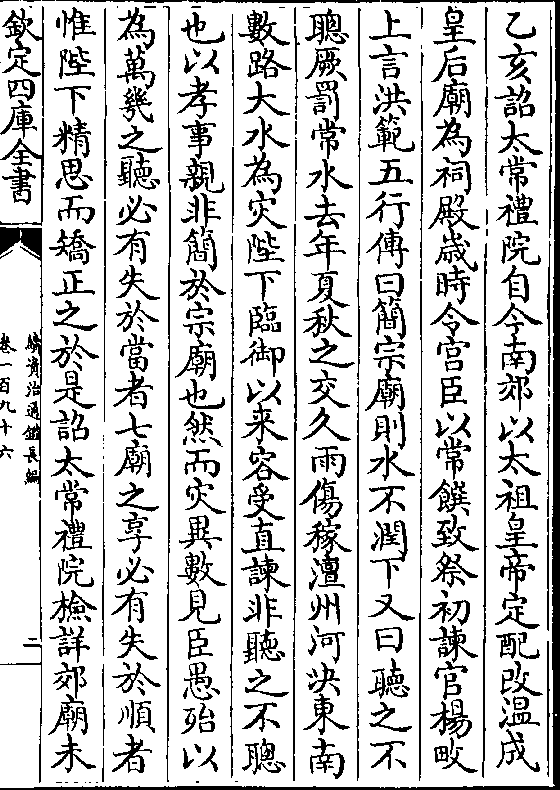 乙亥詔太常禮院自今南郊以太祖皇帝定配改溫成
皇后廟為祠殿歲時令宮臣以常饌致祭初諫官楊畋
上言洪範五行傳曰簡宗廟則水不潤下又曰聽之不
聰厥罰常水去年夏秋之交久雨傷稼澶州河決東南
數路大水為災陛下臨御以来容受直諫非聽之不聰
也以孝事親非簡於宗廟也然而災異數見臣愚殆以
為萬幾之聽必有失於當者七廟之享必有失於順者
惟陛下精思而矯正之於是詔太常禮院檢詳郊廟未
欽定四庫全書
續資治通鑑長編
卷一百九十六
二